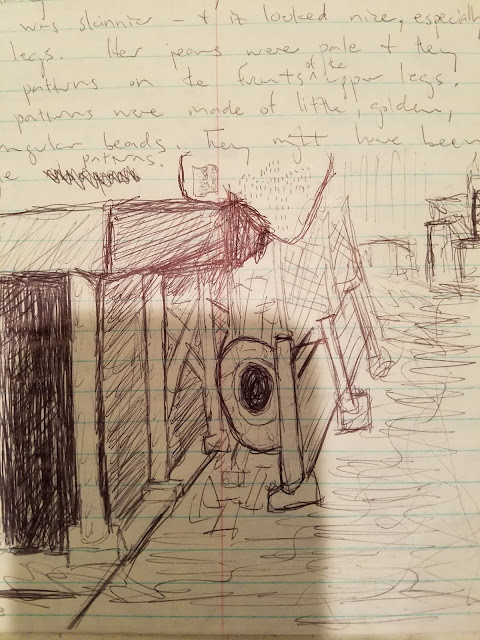 was skinnier – & it looked nice, especially
legs. Her jeans were pale & they
patterns on the fronts of the upper legs.
patterns were made of little, golden,
ngular beads. They might have been
patterns.